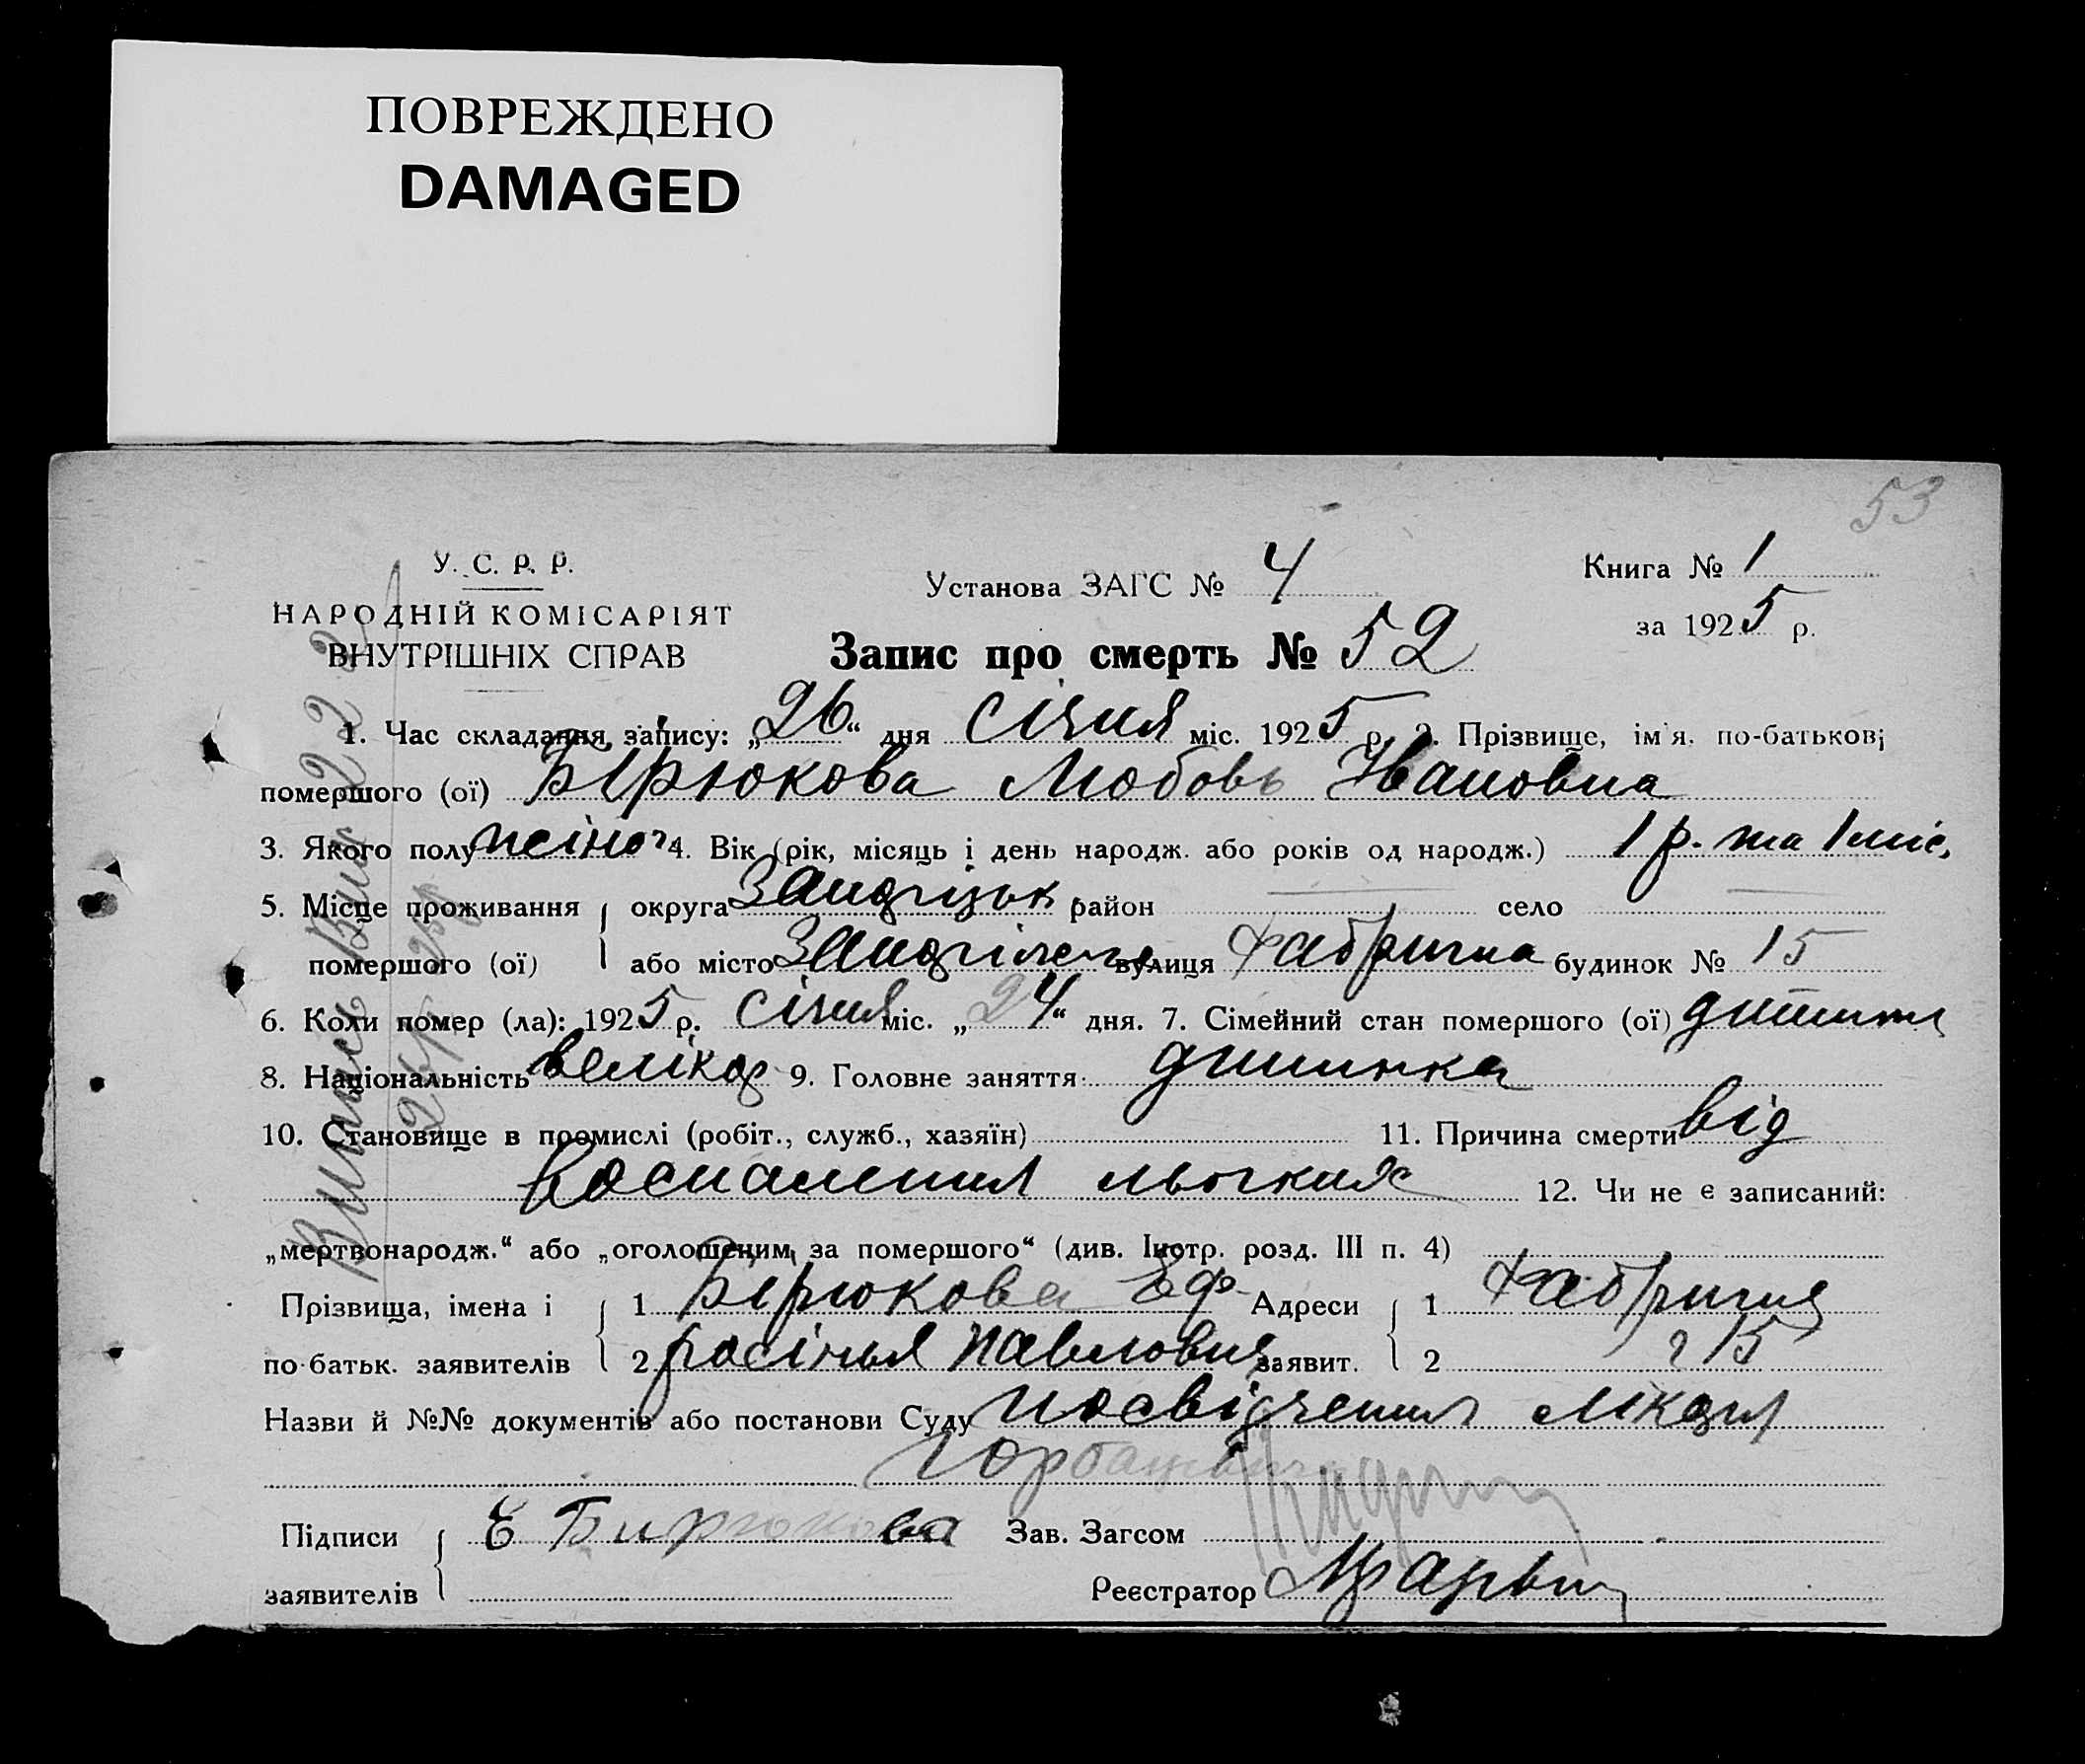 ПОВРЕЖДЕНО
DAMAGED
53
У. С. Р. Р.
НАРОДНІЙ КОМІСАРІЯТ
ВНУТРІШНІХ СПРАВ
Установа ЗАГС № 4
Книга № 1
за 1925 р.
Запис про смерть № 52
1. Час складання запису: „26“ дня січня міс. 1925 р. 2. Прізвище, ім'я. по-батькові
помершого (ої) Бірюкова Любовь Ивановна
3. Якого полу жіноч 4. Вік (рік, місяць і день народж. або років од народж.) 1 р. та 1 міс.
5. Місце проживання округа район село
помершого (ої) або місто вулиця Фабрична будинок № 15
6. Коли помер (ла): 1925 р. січня міс. „24“ дня. 7. Сімейний стан помершого (ої) дитина
8. Національність велікор 9. Головне заняття дитинка
10. Становище в промислі (робіт., служб., хазяїн) 11. Причина смерти від
воспаления льогких 12. Чи не є записаний:
„мертвонародж.“ або „оголошеним за помершого“ (див. Інстр. розд. III п. 4)
Прізвища, імена і 1 Бірюкова Еф- Адреси 1 Фабричня
по-батьк. заявителів 2 росінья Павловня заявит. 2 15
Назви й №№ документів або постанови Суду посвідчення
Підписи Е Бирюкова Зав. Загсом
заявителів Реєстратор